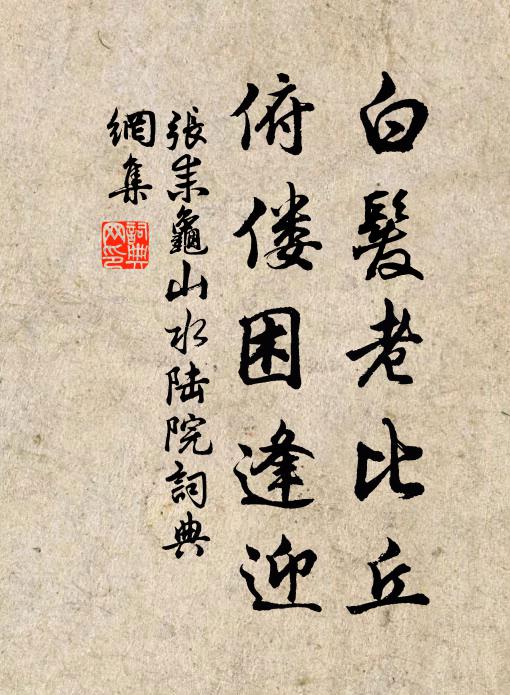 白髮老比丘
俯僂困逢迎
張耒龜山水陸院詞典
網集
詞典
网印